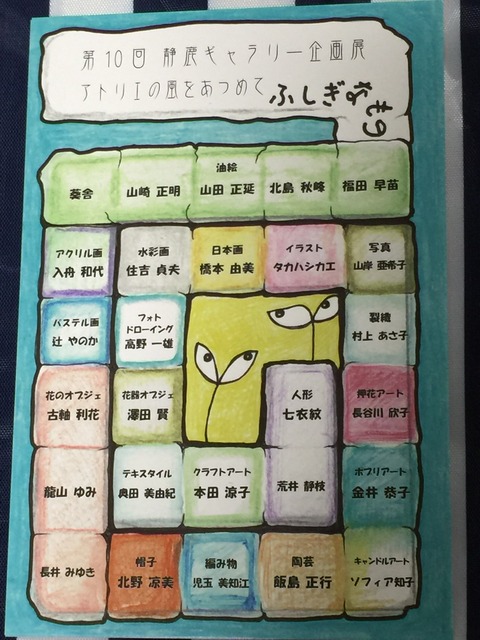 第10回 静鹿ギャラリー企画展
アトリエの風をあつめて ふしぎなもり
油絵
葵舎 山崎 正明 山田 正延 北島 秋峰 福田 早苗
アクリル画 水彩画 日本画 イラスト 写真
入舟 和代 住吉 貞夫 橋本 由美 タカハシカエ 山岸 亜希子
パステル画 フォト 裂織
ドローイング
辻 やのか 高野 一雄 村上 あさ子
花のオブジェ 花器オブジェ 人形 押花アート
古軸 利花 澤田 賢 七衣紋 長谷川 欣子
テキスタイル クラフトアート ポプリアート
龍山 ゆみ 奥田 美由紀 本田 涼子 荒井 静枝 金井 恭子
帽子 編み物 陶芸 キャンドルアート
長井 みゆき 北野 凉美 児玉 美知江 飯島 正行 ソフィア知子